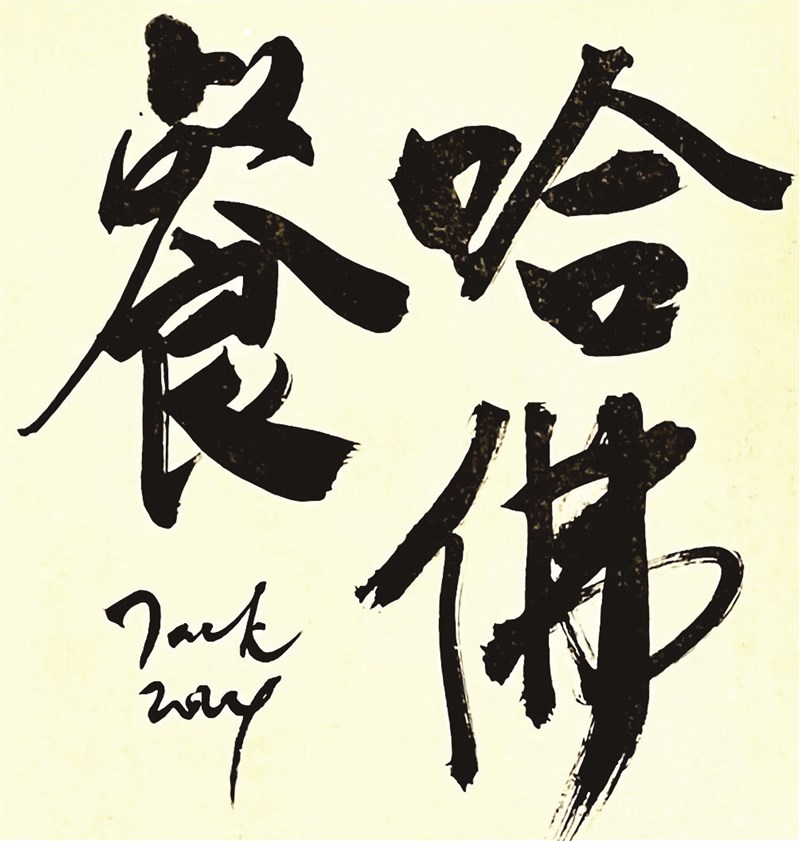 哈佛
餐
Jack
2024